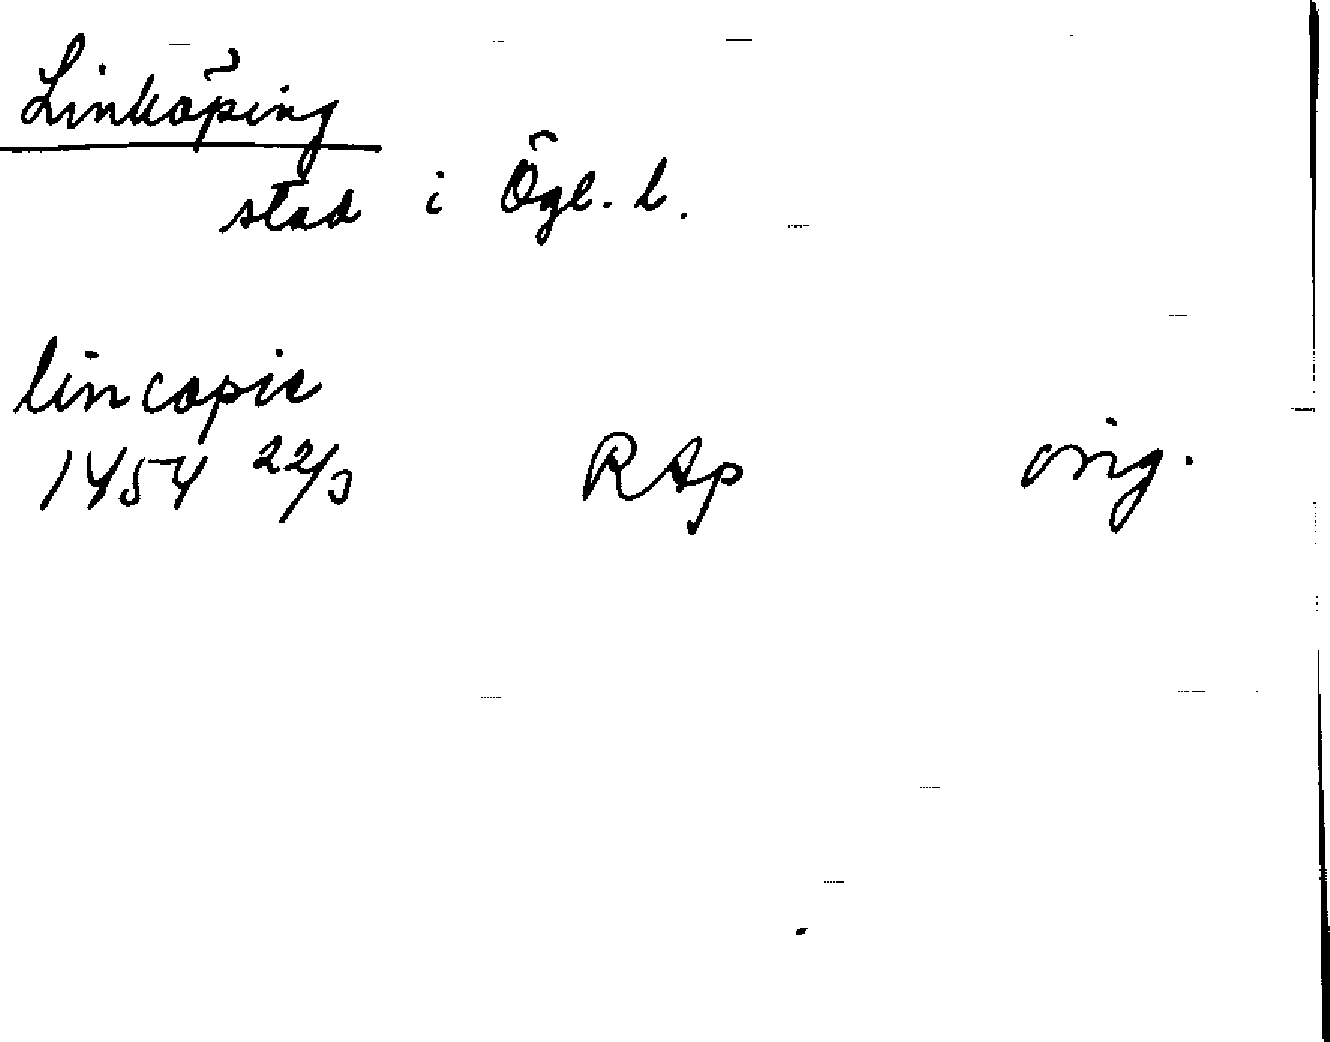 Linköping
stad i Ögl. l.
lincopie
1454 22/3 RAp orig.